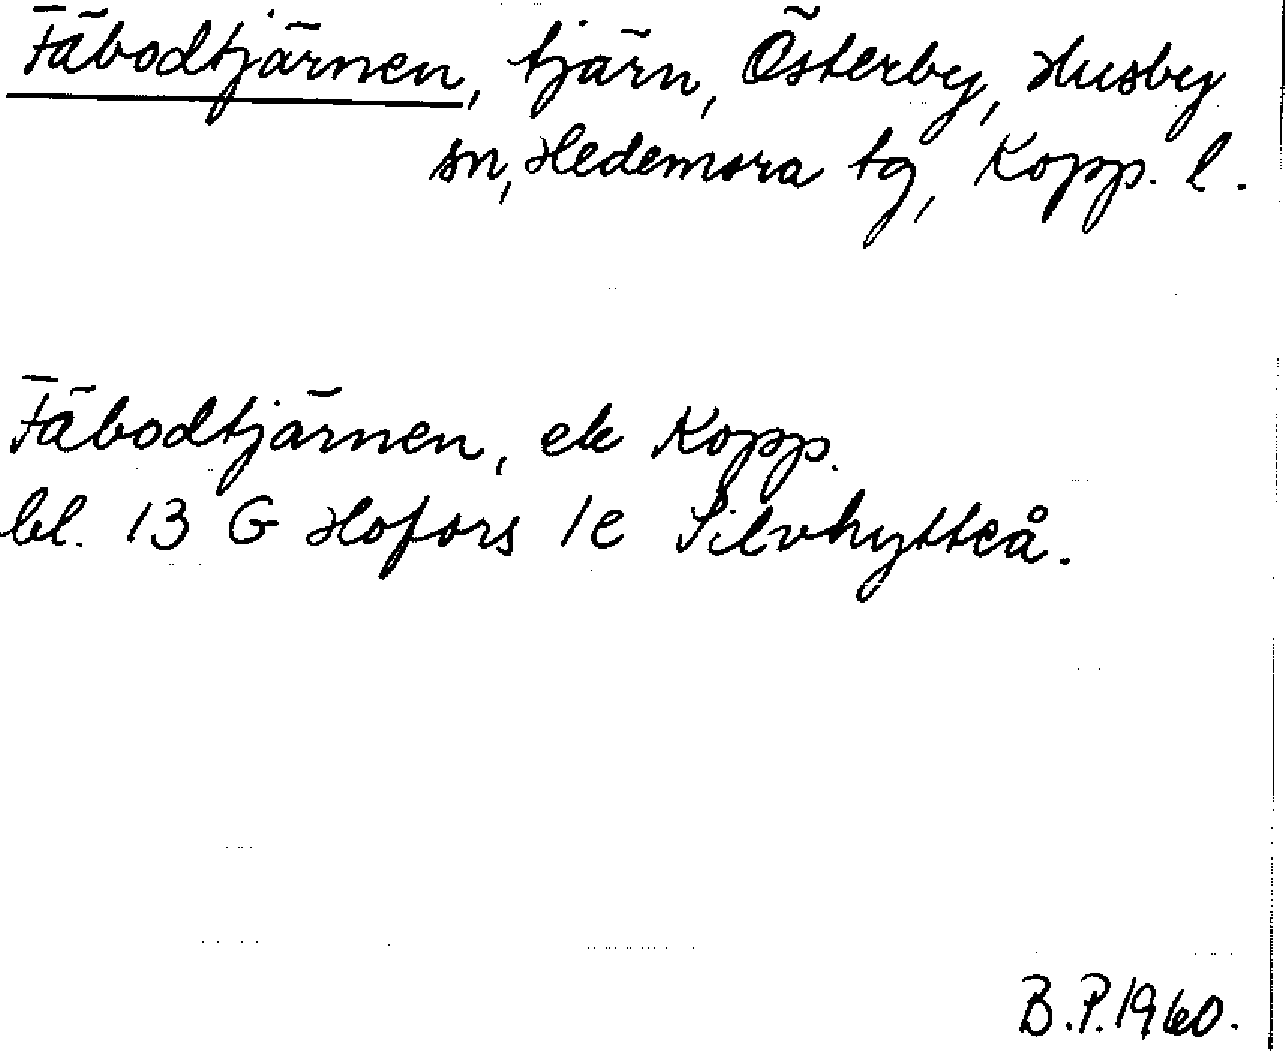 Fäbodtjärnen, tjärn, Österby, Husby
sn, Hedemora tg, Kopp. l.
Fäbodtjärnen, ek Kopp.
bl. 13 G Hofors 1e Silvhytteå.
B.P. 1960.